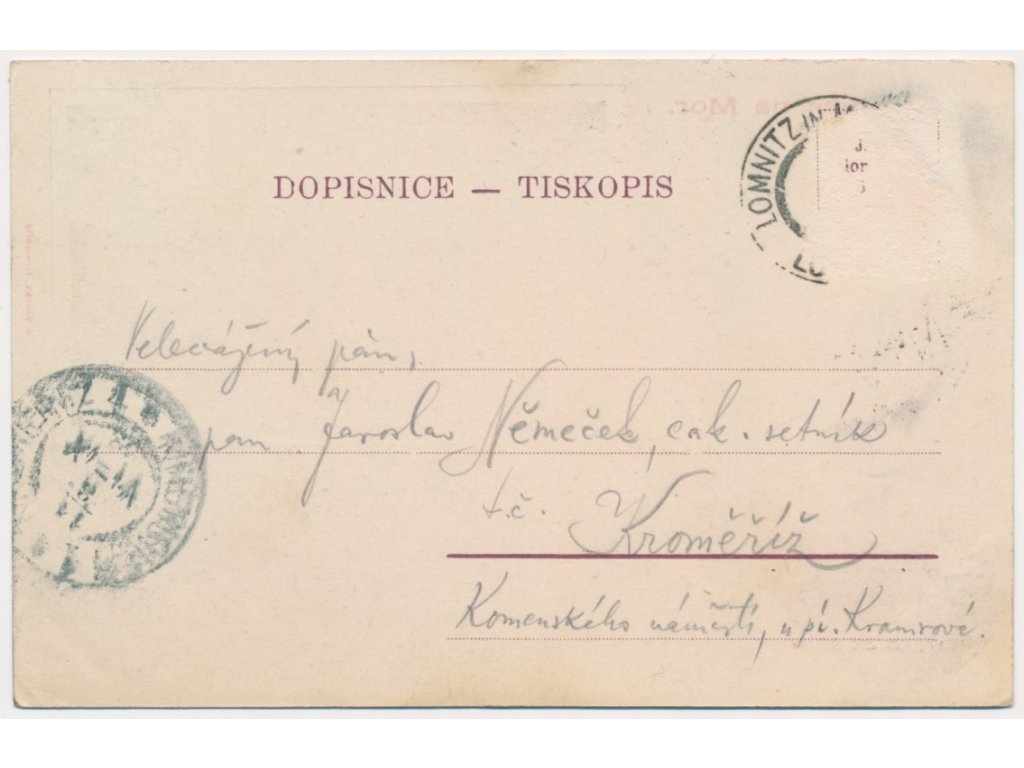 DOPISNICE — TISKOPIS
LOMNITZ IN
LO
Velevážený pán,
pan Jaroslav Němeček, c.a k. setník
t.č. Kroměříž
Komenského náměstí, u pí.